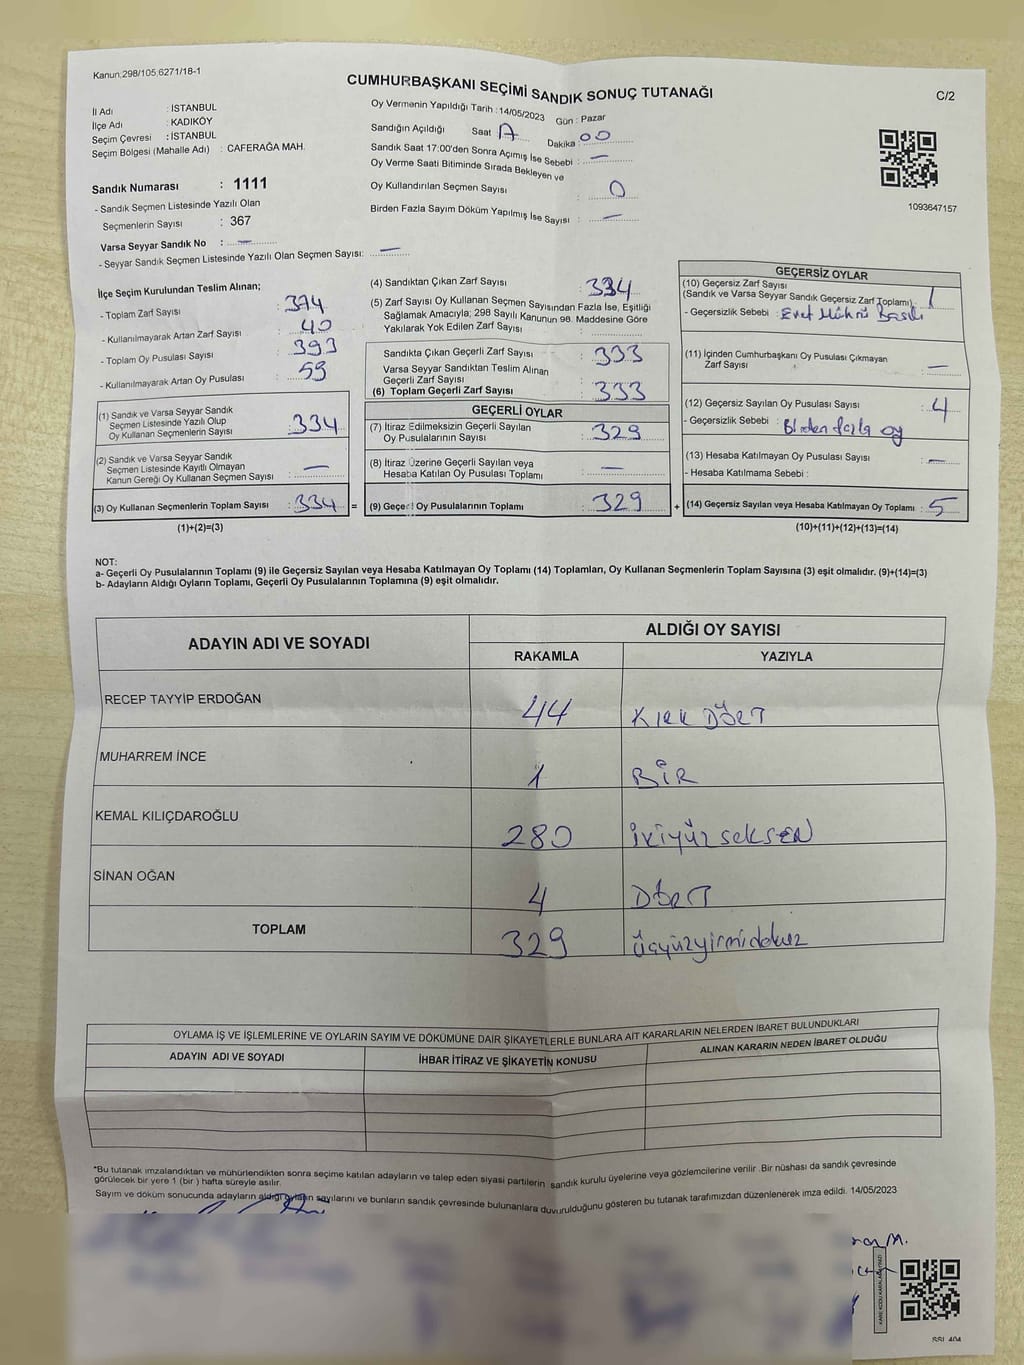 Kanun:298/105,6271/18-1
CUMHURBAŞKANI SEÇİMİ SANDIK SONUÇ TUTANAĞI
C/2
İl Adı : İSTANBUL
İlçe Adı : KADIKÖY
Seçim Çevresi : İSTANBUL
Seçim Bölgesi (Mahalle Adı) : CAFERAĞA MAH.
Oy Vermenin Yapıldığı Tarih : 14/05/2023 Gün : Pazar
Sandığın Açıldığı Saat Dakika : 00
Sandık Saat 17:00'den Sonra Açımış İse Sebebi : —
Oy Verme Saati Bitiminde Sırada Bekleyen ve
Oy Kullandırılan Seçmen Sayısı : 0
Birden Fazla Sayım Döküm Yapılmış İse Sayısı : —
1093647157
Sandık Numarası : 1111
- Sandık Seçmen Listesinde Yazılı Olan
Seçmenlerin Sayısı : 367
Varsa Seyyar Sandık No : —
- Seyyar Sandık Seçmen Listesinde Yazılı Olan Seçmen Sayısı: —
İlçe Seçim Kurulundan Teslim Alınan;
- Toplam Zarf Sayısı : 374
- Kullanılmayarak Artan Zarf Sayısı : 40
- Toplam Oy Pusulası Sayısı : 393
- Kullanılmayarak Artan Oy Pusulası : 59
(1) Sandık ve Varsa Seyyar Sandık
Seçmen Listesinde Yazılı Olup
Oy Kullanan Seçmenlerin Sayısı : 334
(2) Sandık ve Varsa Seyyar Sandık
Seçmen Listesinde Kayıtlı Olmayan
Kanun Gereği Oy Kullanan Seçmen Sayısı : —
(3) Oy Kullanan Seçmenlerin Toplam Sayısı : 334 =
(1)+(2)=(3)
(4) Sandıktan Çıkan Zarf Sayısı : 334
(5) Zarf Sayısı Oy Kullanan Seçmen Sayısından Fazla İse, Eşitliği
Sağlamak Amacıyla; 298 Sayılı Kanunun 98. Maddesine Göre
Yakılarak Yok Edilen Zarf Sayısı :
Sandıkta Çıkan Geçerli Zarf Sayısı : 333
Varsa Seyyar Sandıktan Teslim Alınan
Geçerli Zarf Sayısı :
(6) Toplam Geçerli Zarf Sayısı : 333
GEÇERLİ OYLAR
(7) İtiraz Edilmeksizin Geçerli Sayılan
Oy Pusulalarının Sayısı : 329
(8) İtiraz Üzerine Geçerli Sayılan veya
Hesaba Katılan Oy Pusulası Toplamı : —
(9) Geçerli Oy Pusulalarının Toplamı : 329 +
GEÇERSİZ OYLAR
(10) Geçersiz Zarf Sayısı
(Sandık ve Varsa Seyyar Sandık Geçersiz Zarf Toplamı) : 1
- Geçersizlik Sebebi : Evet Mührü Basılı
(11) İçinden Cumhurbaşkanı Oy Pusulası Çıkmayan
Zarf Sayısı : —
(12) Geçersiz Sayılan Oy Pusulası Sayısı : 4
- Geçersizlik Sebebi : Birden fazla oy
(13) Hesaba Katılmayan Oy Pusulası Sayısı : —
- Hesaba Katılmama Sebebi :
(14) Geçersiz Sayılan veya Hesaba Katılmayan Oy Toplamı : 5
(10)+(11)+(12)+(13)=(14)
NOT:
a- Geçerli Oy Pusulalarının Toplamı (9) ile Geçersiz Sayılan veya Hesaba Katılmayan Oy Toplamı (14) Toplamları, Oy Kullanan Seçmenlerin Toplam Sayısına (3) eşit olmalıdır. (9)+(14)=(3)
b- Adayların Aldığı Oyların Toplamı, Geçerli Oy Pusulalarının Toplamına (9) eşit olmalıdır.
ADAYIN ADI VE SOYADI
ALDIĞI OY SAYISI
RAKAMLA YAZIYLA
RECEP TAYYİP ERDOĞAN 44 KIRK DÖRT
MUHARREM İNCE 1 BİR
KEMAL KILIÇDAROĞLU 280 ikiyüz seksEN
SİNAN OĞAN 4 DÖRT
TOPLAM 329 üçyüzyirmidokuz
OYLAMA İŞ VE İŞLEMLERİNE VE OYLARIN SAYIM VE DÖKÜMÜNE DAİR ŞİKAYETLERLE BUNLARA AİT KARARLARIN NELERDEN İBARET BULUNDUKLARI
ADAYIN ADI VE SOYADI İHBAR İTİRAZ VE ŞİKAYETİN KONUSU ALINAN KARARIN NEDEN İBARET OLDUĞU
*Bu tutanak imzalandıktan ve mühürlendikten sonra seçime katılan adayların ve talep eden siyasi partilerin sandık kurulu üyelerine veya gözlemcilerine verilir .Bir nüshası da sandık çevresinde
görülecek bir yere 1 (bir ) hafta süreyle asılır.
Sayım ve döküm sonucunda adayların aldığı oyların sayılarını ve bunların sandık çevresinde bulunanlara duvurulduğunu gösteren bu tutanak tarafımızdan düzenlenerek imza edildi. 14/05/2023